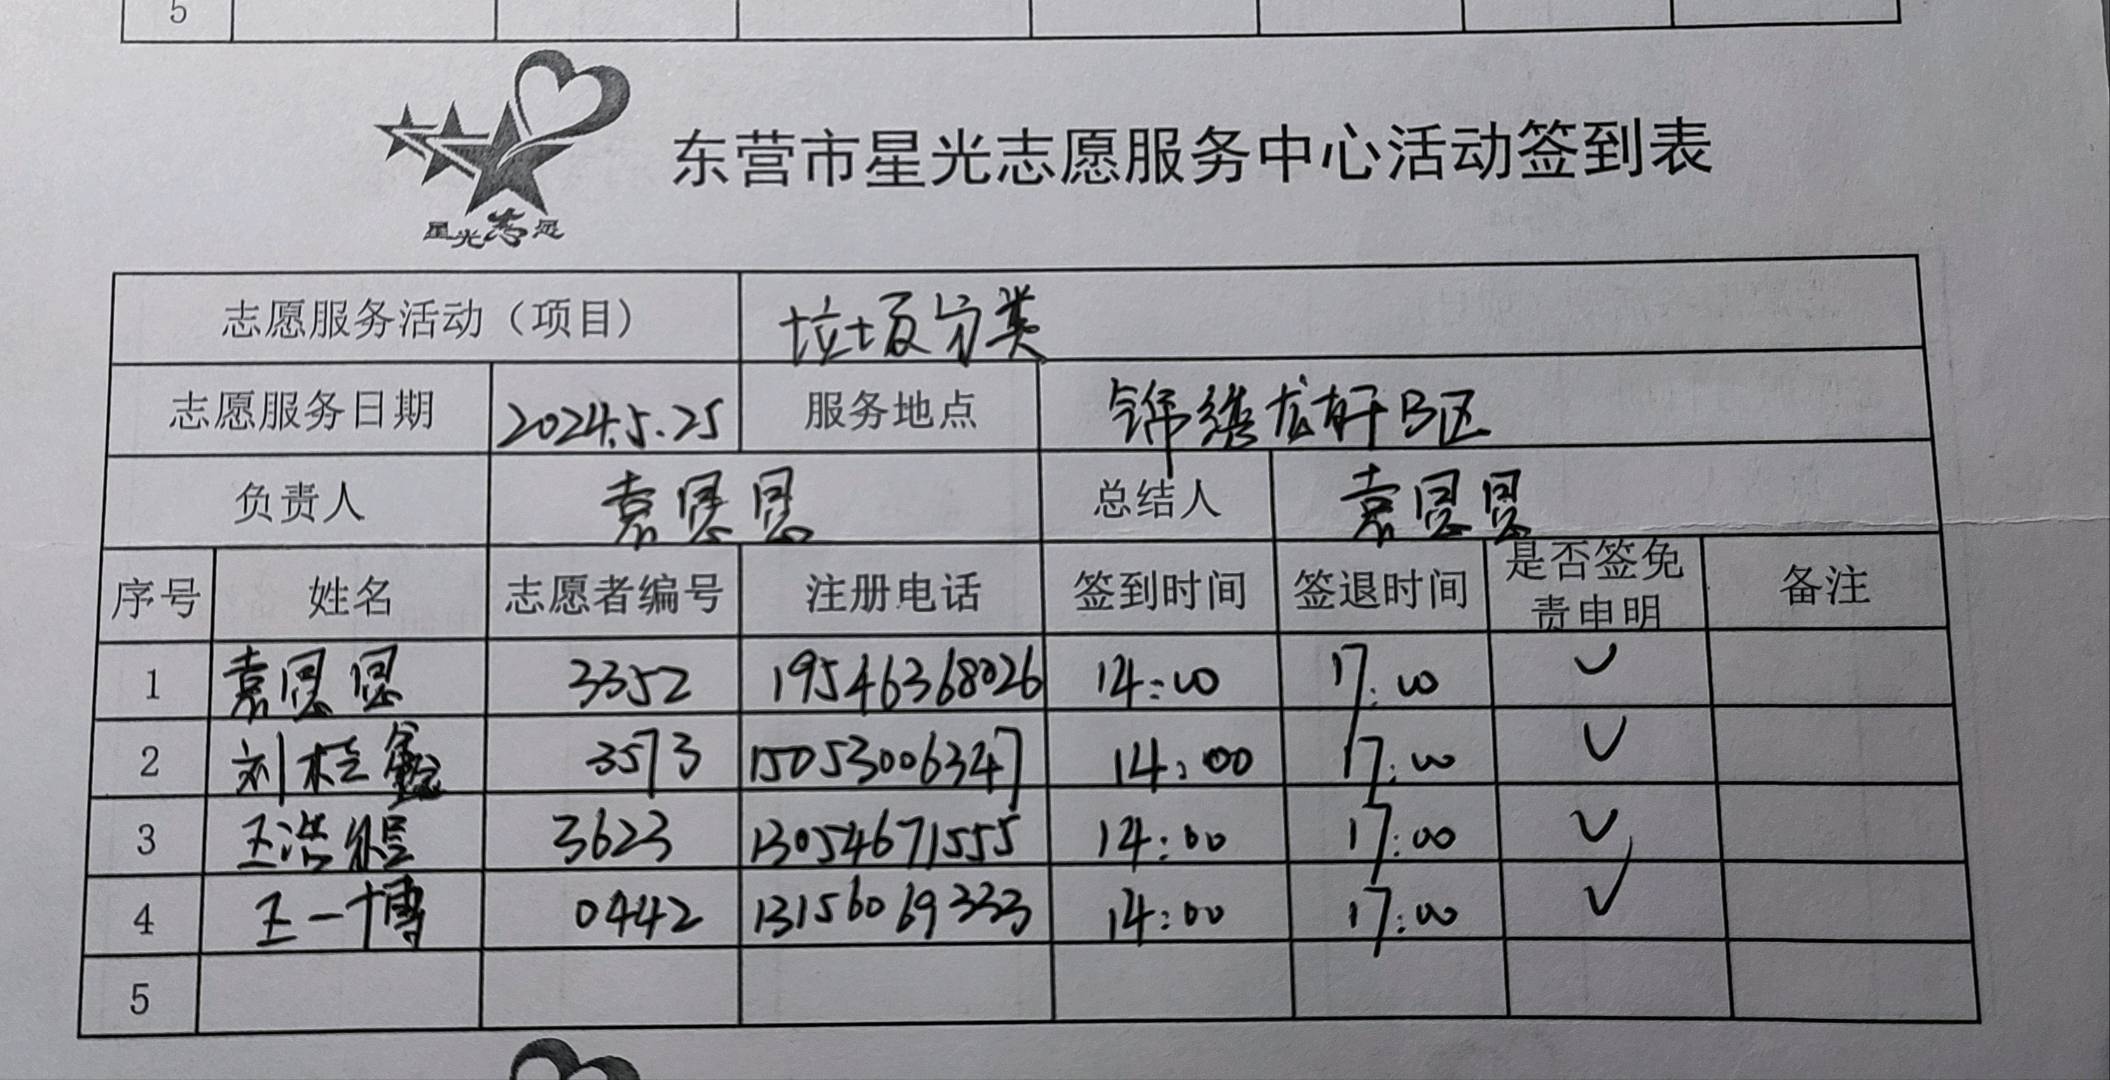 5
星光志愿
东营市星光志愿服务中心活动签到表
志愿服务活动（项目） 垃圾分类
志愿服务日期 2024.5.25 服务地点 锦绣龙轩B区
负责人 袁恩恩 总结人 袁恩恩
序号 姓名 志愿者编号 注册电话 签到时间 签退时间 是否签免责申明 备注
1 袁恩恩 3352 19546368026 14:00 17:00 ✓
2 刘桂鑫 3573 15053006347 14:00 17:00 ✓
3 王浩 3623 13054671555 14:00 17:00 ✓
4 王一博 0442 13156069333 14:00 17:00 ✓
5